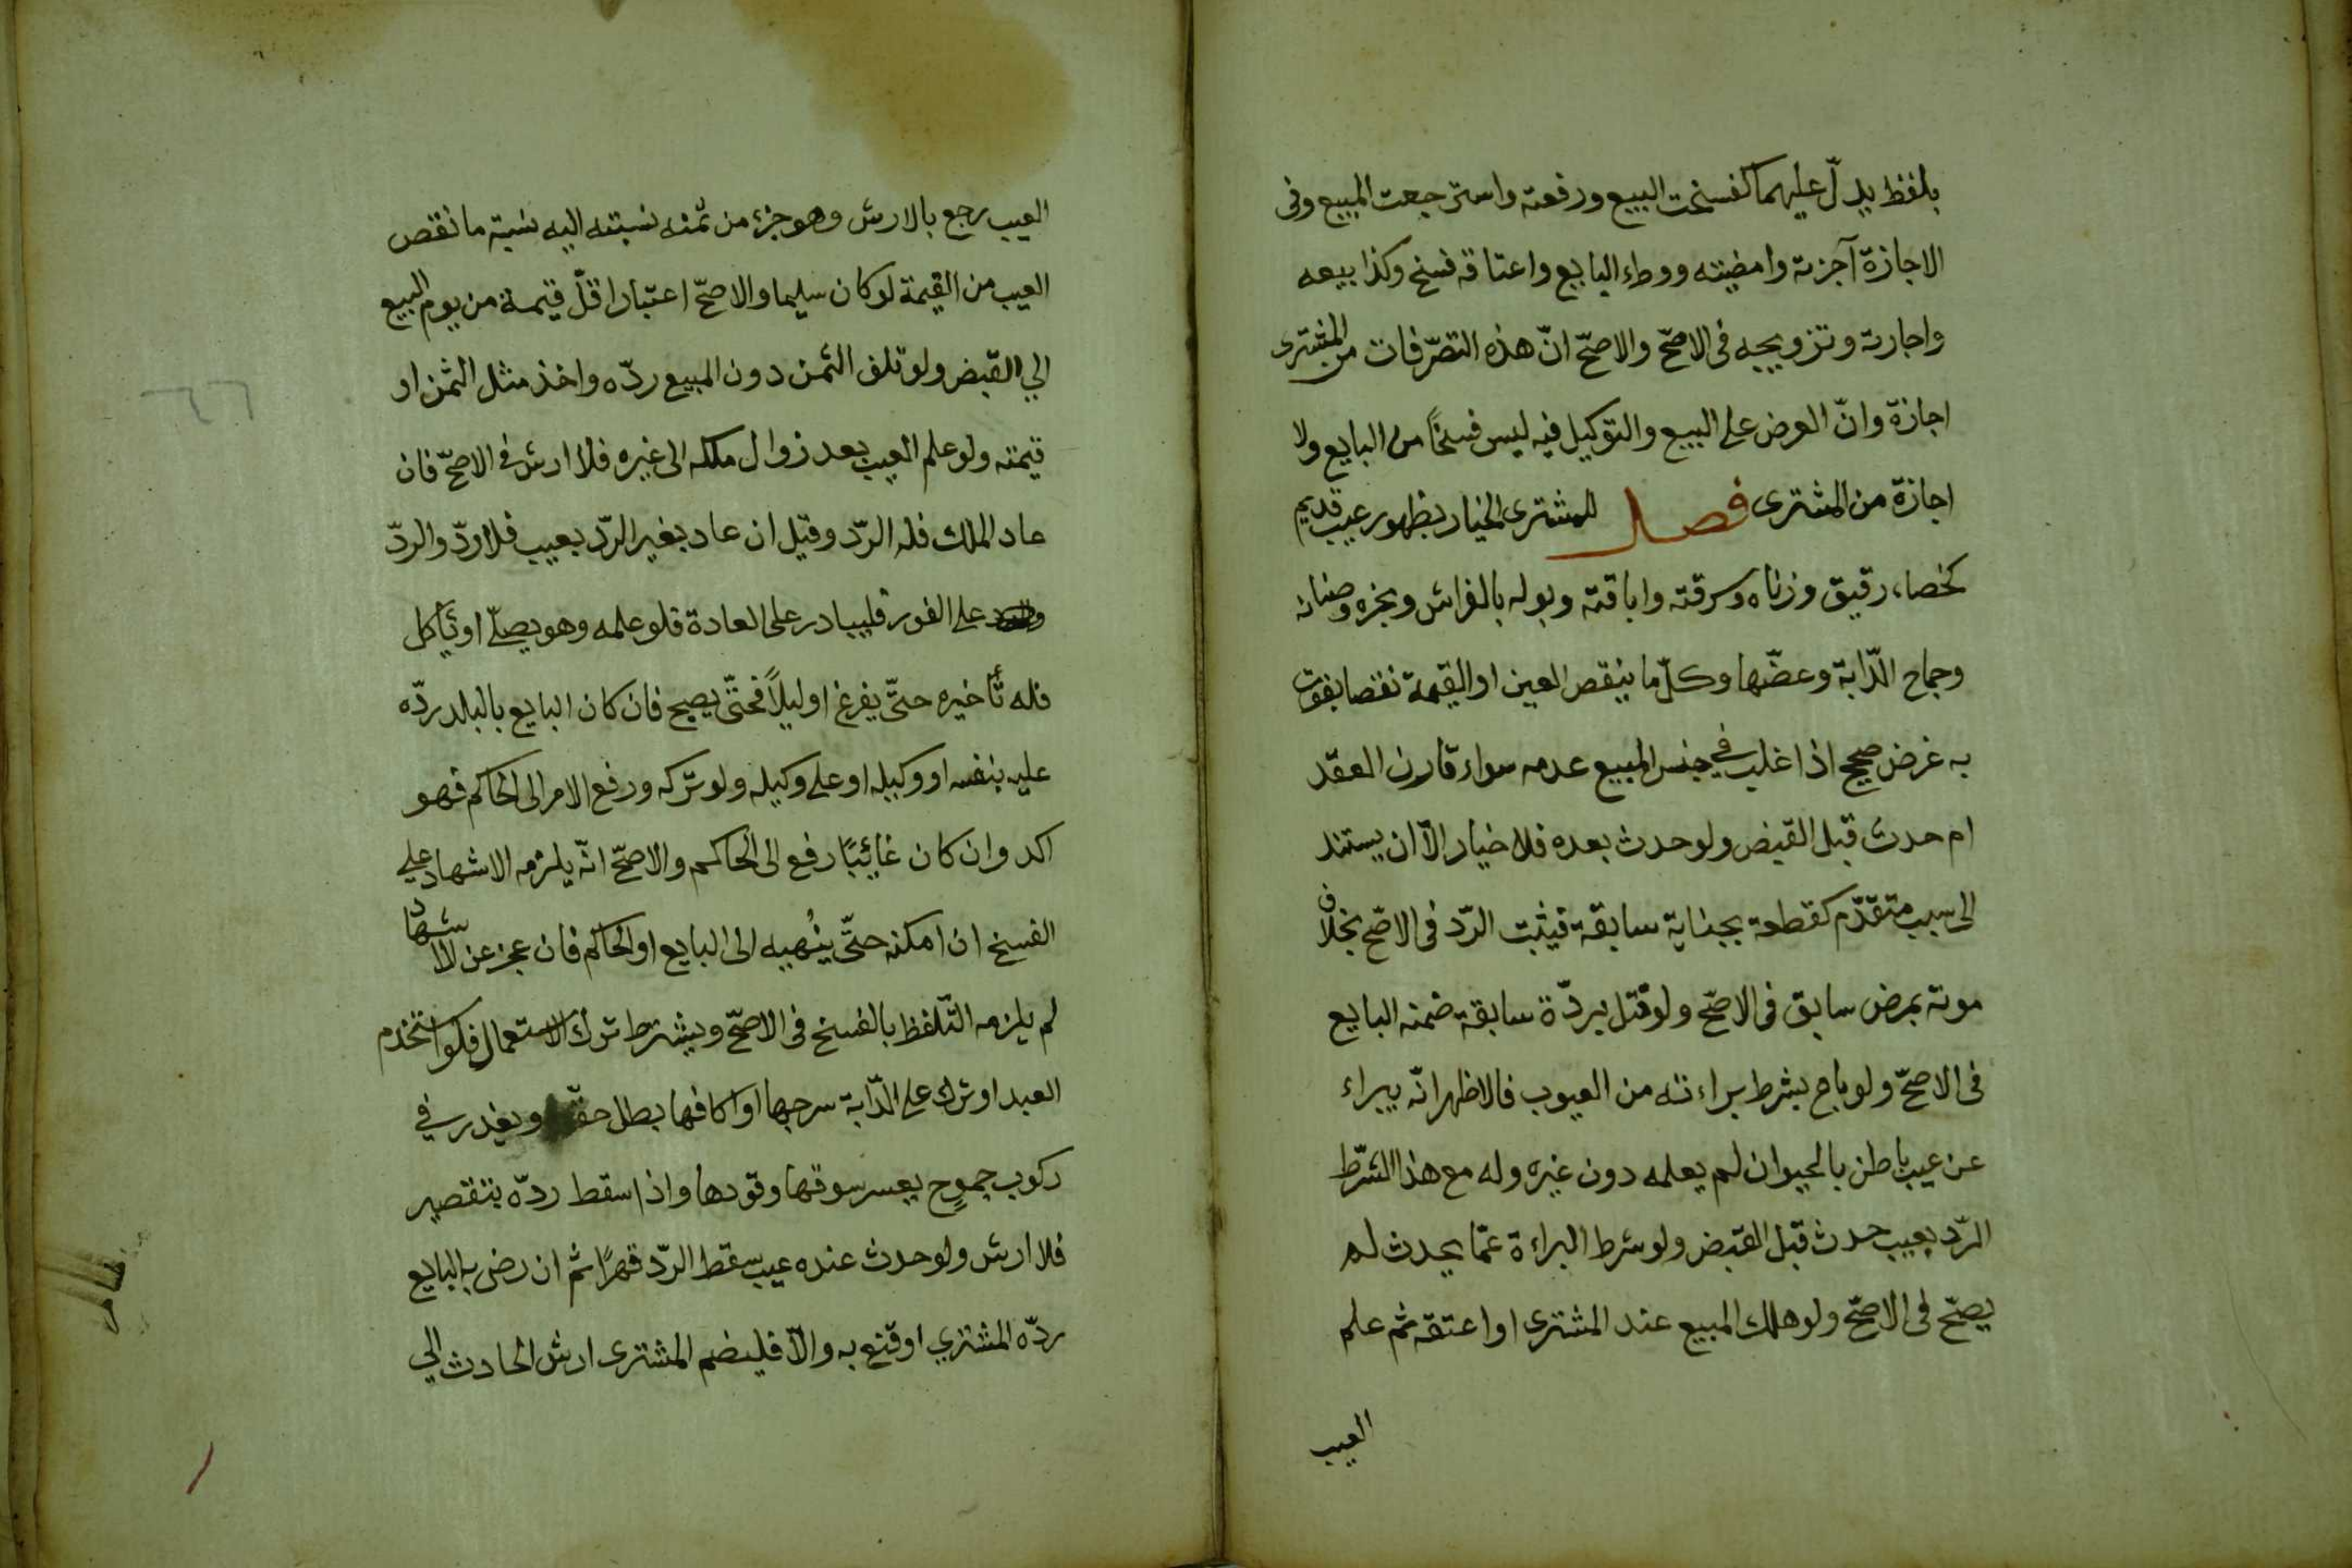 بلفظ يدلّ عليهما كفسخت البيع ورفعته واسترجعت المبيع وفى
الاجازة آجزته وامضيته ووطء البايع واعتاقه فسخ وكذا بيعه
واجارته وتزويجه فى الاصحّ والاصحّ انّ هذه التصرّفات من المشترى
اجازة وانّ العرض على البيع والتوكيل فيه ليس فسخًا من البايع ولا
اجازة من المشترى فصل للمشترى الخيار بظهور عيب قديم
كخصاء رقيق وزناه وسرقته واباقته وبوله بالفراش وبخره وصنانه
وجماح الدّابة وعضّها وكلّ ما ينقص العين او القيمة نقصا يفوت
به غرض صحيح اذا غلب فى جنس المبيع عدمه سواء قارن العقد
ام حدث قبل القبض ولو حدث بعده فلا خيار الّا ان يستند
الى سبب متقدّم كقطعه بجناية سابقة فيثبت الردّ فى الاصّح بخلاف
موته بمرض سابق فى الاصحّ ولو قتل بردّة سابقة ضمنه البايع
فى الاصحّ ولو باع بشرط براءته من العيوب فالاظهر انّه يبراء
عن عيب باطن بالحيوان لم يعلمه دون غيره وله مع هذا الشّرط
الردّ بعيب حدث قبل القبض ولو شرط البراءة عمّا يحدث لم
يصحّ فى الاصحّ ولو هلك المبيع عند المشترى او اعتقه ثم علم
العيب
العيب رجع بالارش وهو جزء من ثمنه نسبته اليه نسبة ما نقص
العيب من القيمة لو كان سليما والاصحّ اعتبار اقلّ قيمة من يوم البيع
الي القبض ولو تلف الثمن دون المبيع ردّه واخذ مثل الثمن او
قيمته ولو علم العيب بعد زوال ملكه الى غيره فلا ارش فى الاصحّ فان
عاد الملك فله الردّ وقيل ان عاد بغير الردّ بعيب فلا ردّ والردّ
على الفور فليبادر على العادة فلو علمه وهو يصلّى او ياكل
فله تأخيره حتّى يفرغ او ليلًا فحتّى يصبح فان كان البايع بالبلد ردّه
عليه بنفسه او وكيله او على وكيله ولو تركه ورفع الامر الى الحاكم فهو
اكد وان كان غائبًا رفع الى الحاكم والاصحّ انّه يلزمه الاشهاد على
الفسخ ان امكنه حتّى يُنهيه الى البايع او الحاكم فان عجز عن الاشهاد
لم يلزمه التّلفظ بالفسخ فى الاصحّ ويشترط ترك الاستعمال فلو استخدم
العبد او ترك على الدّابة سرجها او اكافها بطل حقّه ويعذر في
ركوب جموح يعسر سوقها وقودها واذا سقط ردّه بتقصير
فلا ارش ولو حدث عنده عيب سقط الردّ قهرًا ثم ان رضى به البايع
ردّه المشتري او قنع به والّا فليضم المشترى ارش الحادث الي